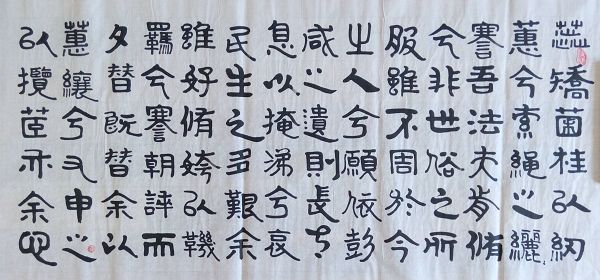 蕊矯菌桂以紉
蕙兮索繩之纚
謇吾法夫前脩
兮非世俗之所
服雖不周於今
之人兮願依彭
咸之遺則長太
息以掩涕兮哀
民生之多艱余
雖好脩姱以鞿
羈兮謇朝誶而
夕替既替余以
蕙纕兮又申之
以攬茝亦余心